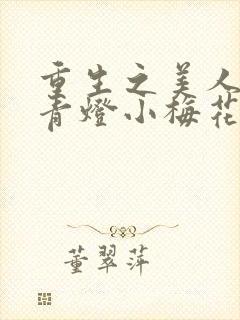 重生之美人
青燈小梅花
董翠萍